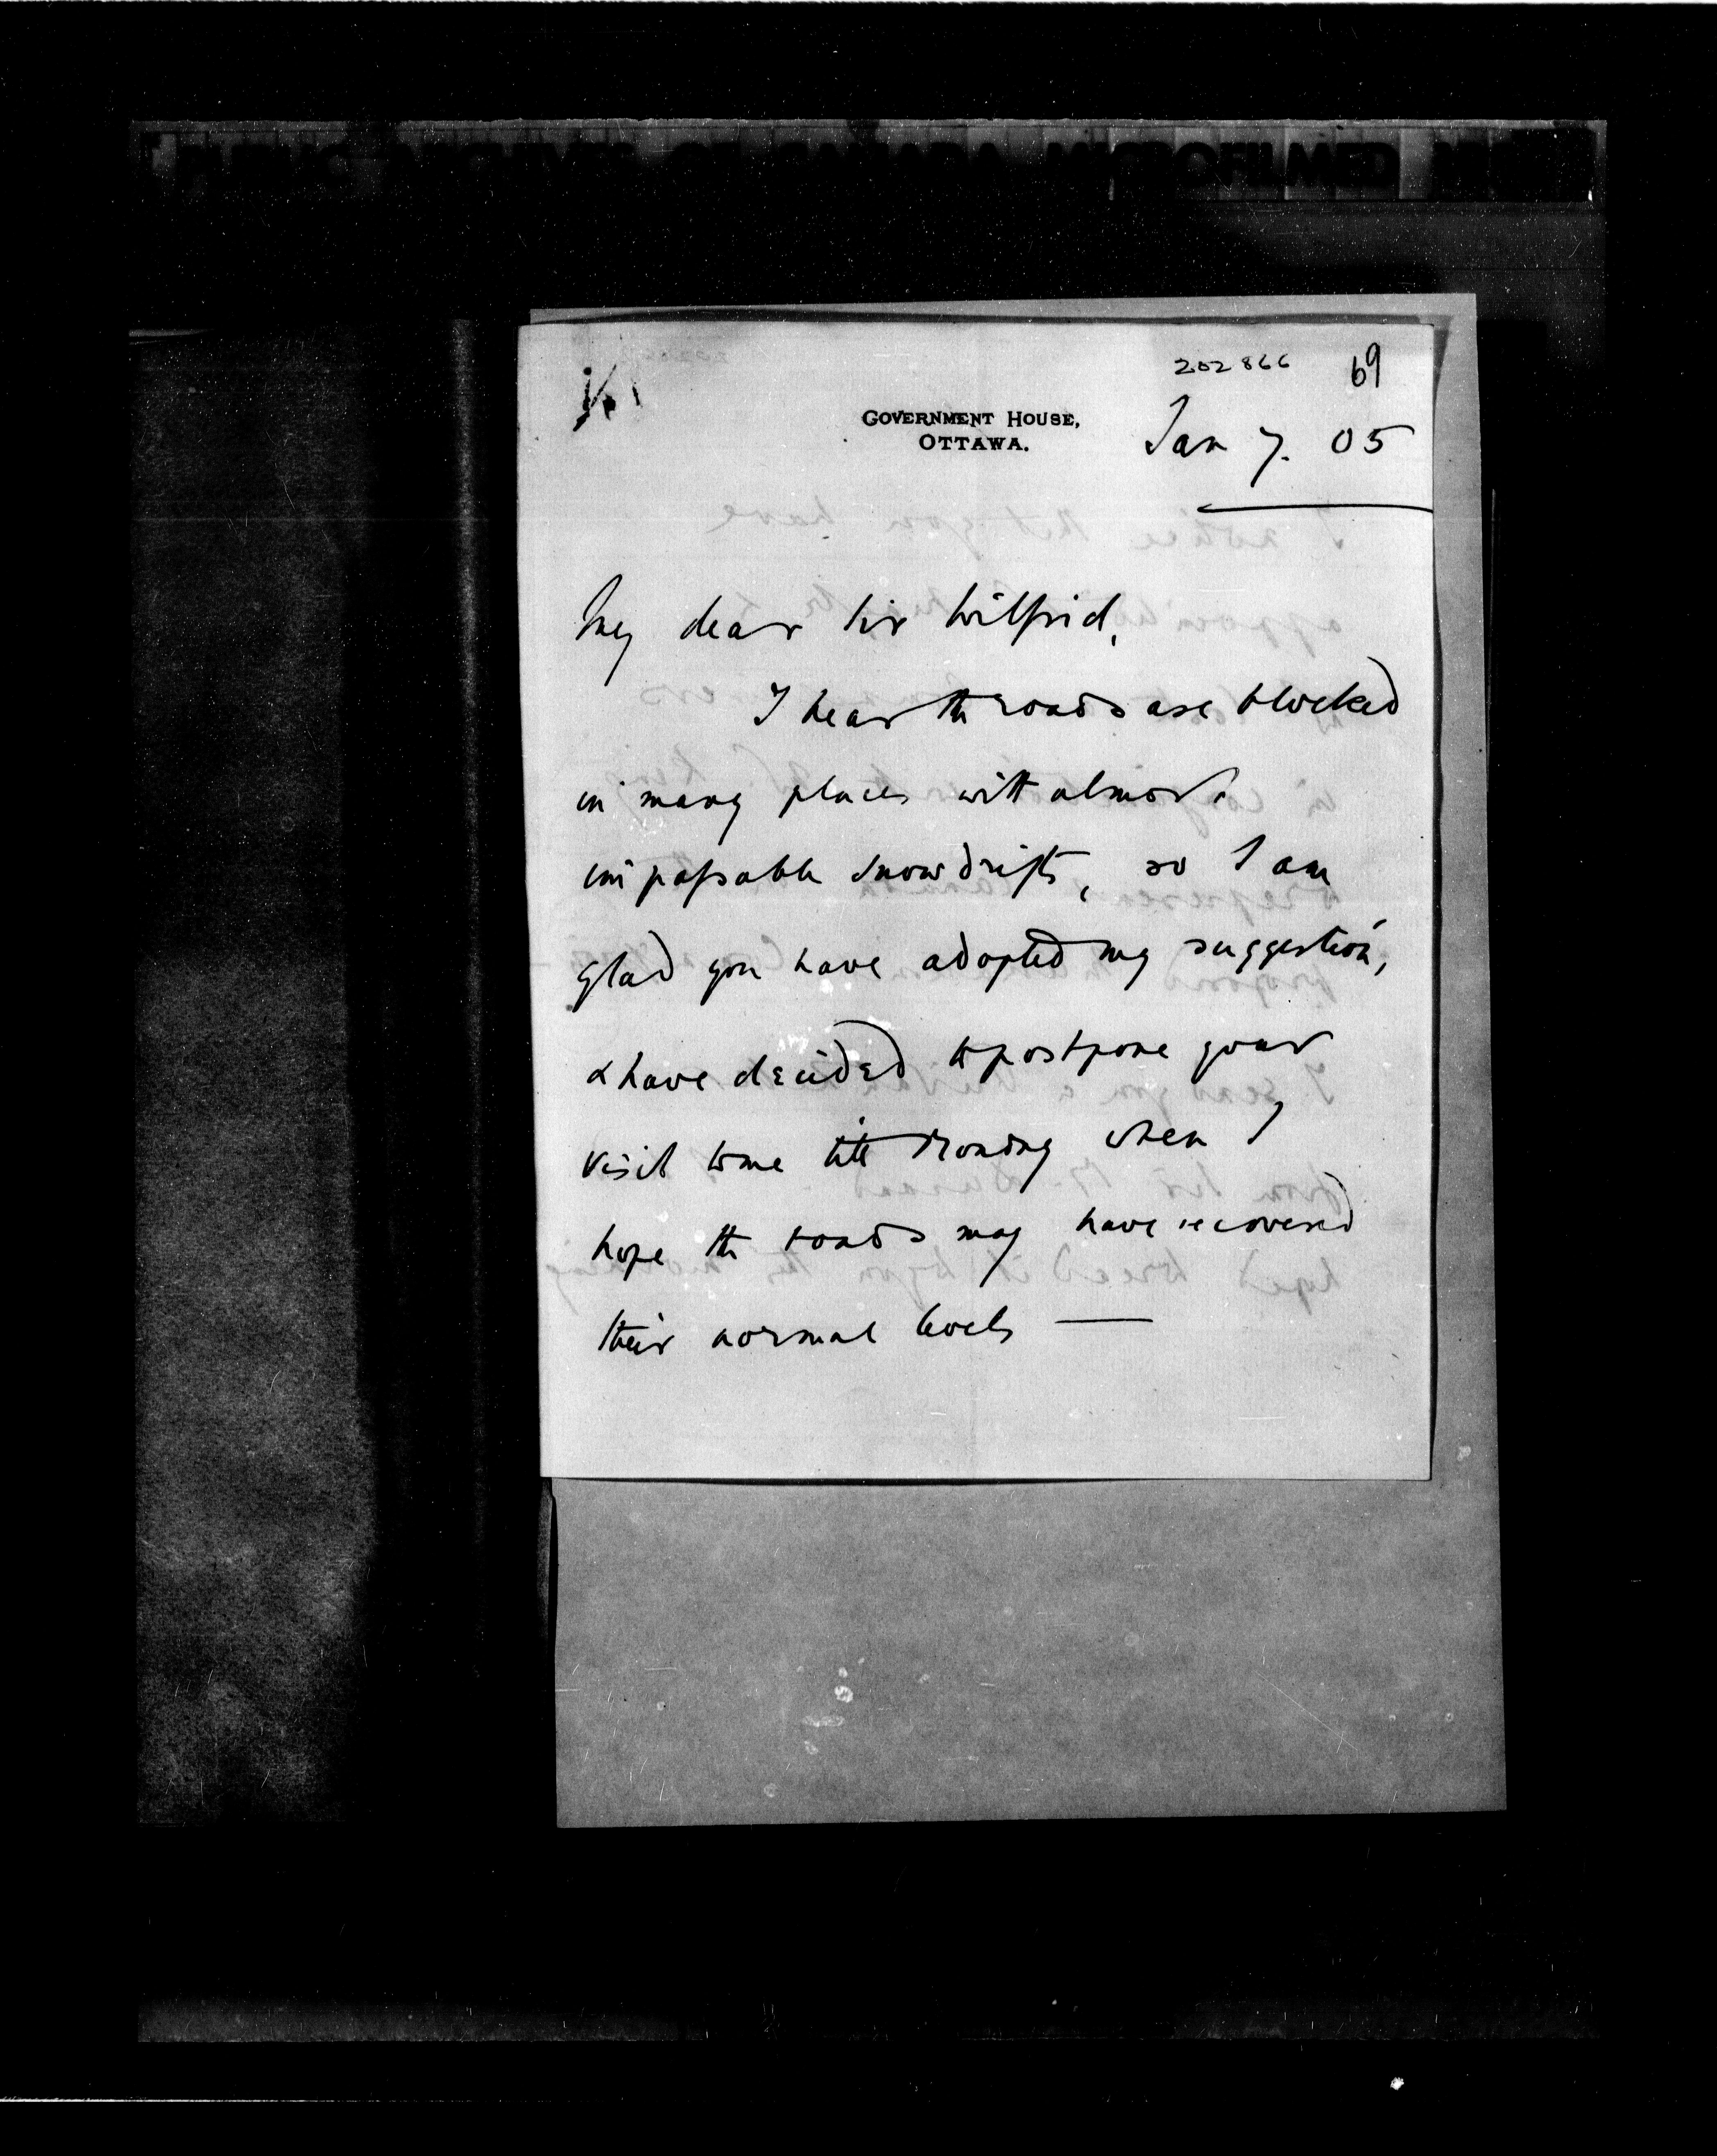 PUBLIC ARCHIVES OF CANADA MICROFILMED
202866 69
GOVERNMENT HOUSE,
OTTAWA.
Jan 7. 05
My dear Sir Wilfrid,
I hear the roads are blocked
in many places with almost
impassable snowdrifts, so I am
glad you have adopted my suggestion,
& have decided to postpone your
visit to me till Monday when I
hope the roads may have recovered
their normal levels —